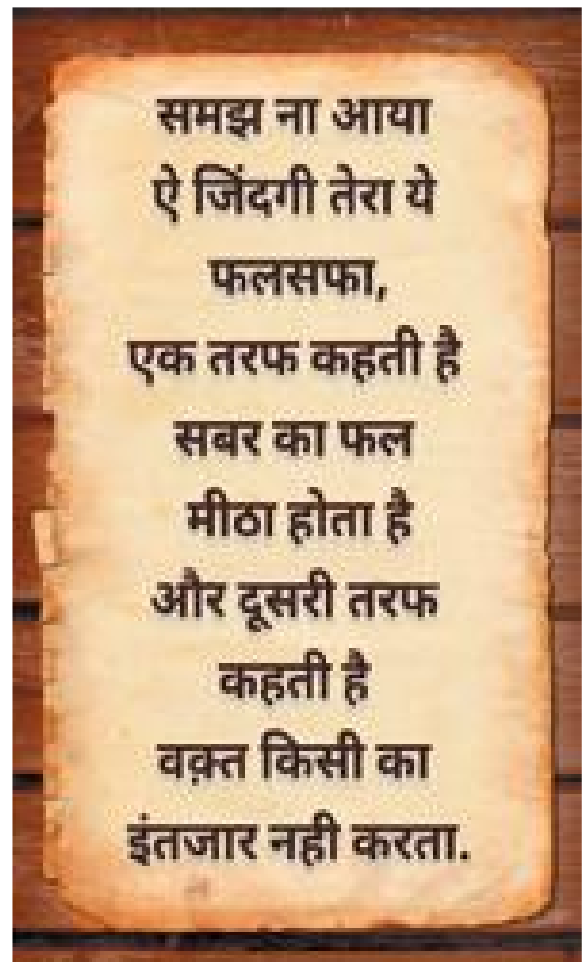 समझ ना आया
ऐ जिंदगी तेरा ये
फलसफा,
एक तरफ कहती है
सबर का फल
मीठा होता है
और दूसरी तरफ
कहती है
वक़्त किसी का
इंतजार नही करता.